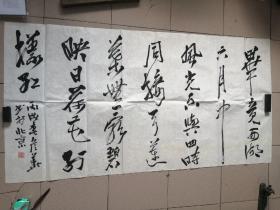 畢竟西湖
六月中
風光不與四時
同接天蓮
葉無窮碧
映日荷花别
樣紅
北京